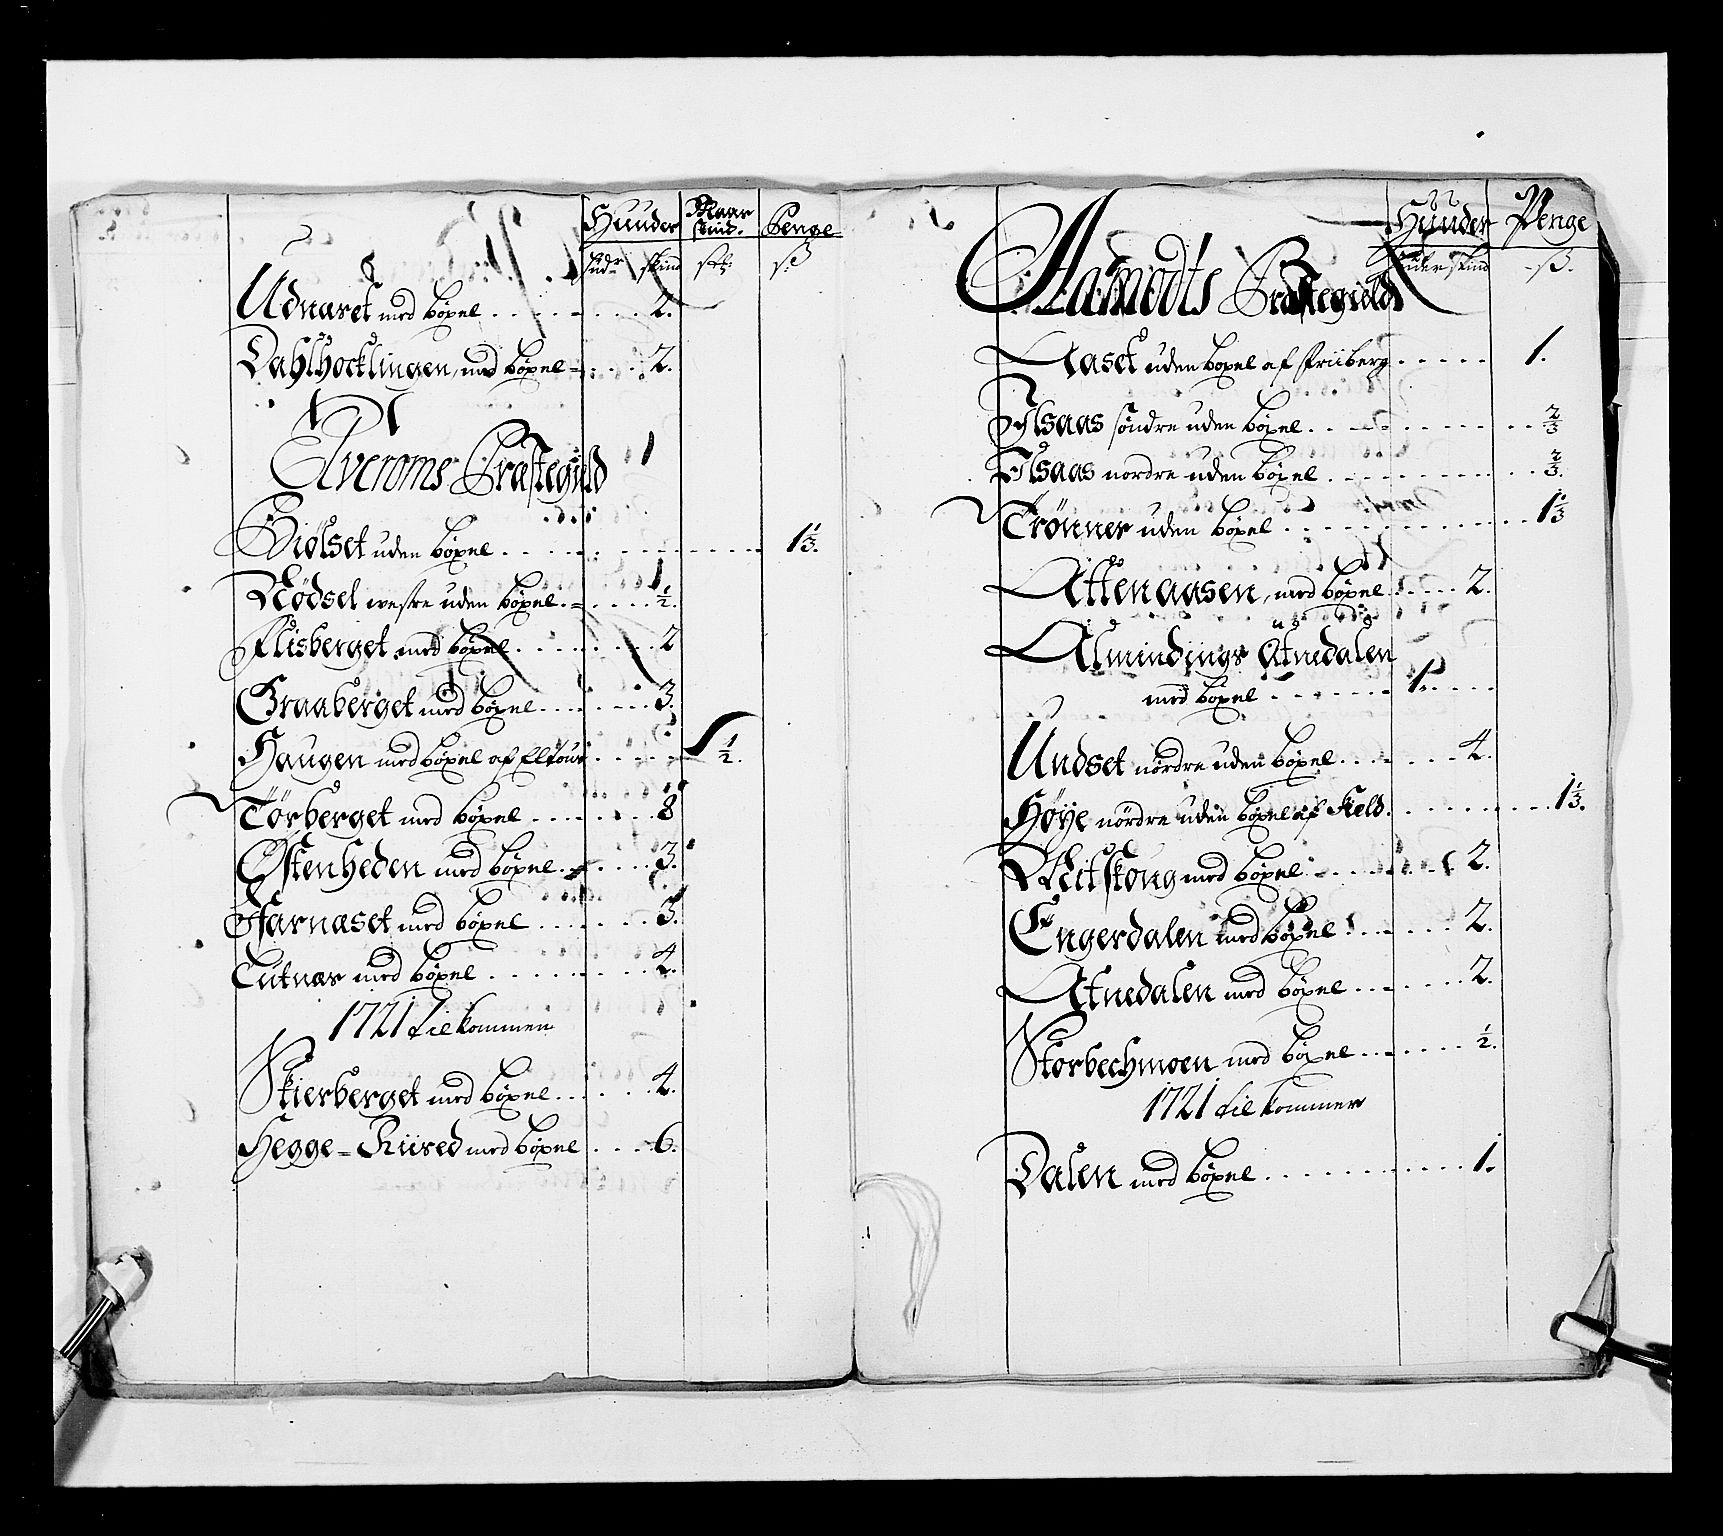 Huuder Maar skind. Penge
hudr skind stk: ß
Udnaret med böxel . . . . 2.
Dahlhocklingen, med böxel . . . . 2.
Elveroms Præstegield
Giølset uden böxel . . . . 1 1/3.
Nødsel westre uden böxel . . . . 1/2.
Flisberget med böxel . . . . 2
Graaberget med böxel . . . . 3.
Haugen med böxel af Eltour . . . . 1/2.
Törberget med böxel . . . . 8
Østenheden med böxel . . . . 3.
Farnæset med böxel . . . . 3.
Tutnær med böxel . . . . 4.
1721 tilkommen
Skierberget med böxel . . . . 4.
Hegge-Riised med böxel . . . . 6.
Huuder Penge
huder skind ß.
Aamodts Præstegield
Aaset uden böxel af friiberg . . . . 1.
Ilsaas söndre uden böxel . . . . 2/3
Ilsaas nordre uden böxel . . . . 2/3.
Trönner uden böxel . . . . 1 1/3
Attenaasen, med böxel . . . . 2.
Almindings Atnedalen
med böxel . . . . 1.
Undset nordre uden böxel . . . . 4.
Høye nördre uden böxel af Field . . . . 1 1/3.
Mitskoug med böxel . . . . 2.
Engerdalen med böxel . . . . 2.
Atnedalen med böxel . . . . 2.
Storbechmoen med böxel . . . . 1/2.
1721 tilkommer
Dalen med böxel . . . . 1.